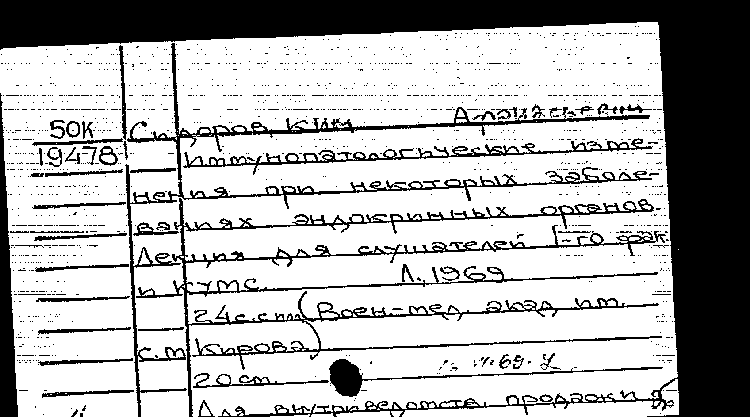 50К Сидоров, Ким
19478 Иммунопатологические изме-
нения при некоторых заболе-
ваниях эндокринных органов.
Лекция для слушателей I-го фак.
и КУМС. Л., 1969
24 с. (Воен-мед. акад им.
с.м Кирова)
20 см.
Для внутриведомств. продажи